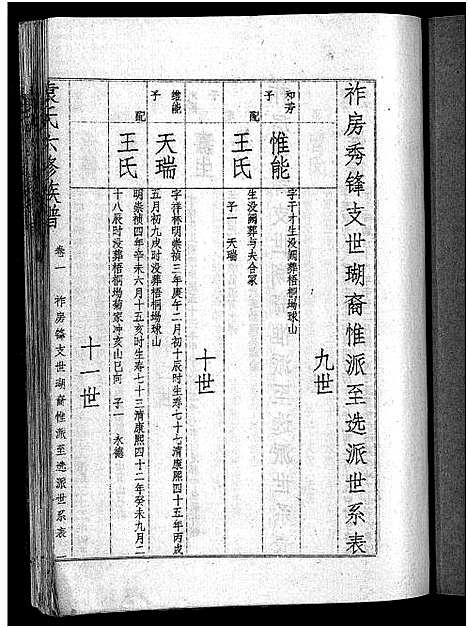 祚房秀锋支世瑚裔惟派至选派世系表
九世
和芳
子
惟能
字干才生没阙葬梧桐塲球山
配
王氏
生没阙葬与夫合冢
子一 天瑞
十世
维能
子
天瑞
字祥林明崇祯三年庚午二月初十辰时生寿七十七清康熙四十五年丙戌
五月初九戌时没葬梧桐塲球山
配
王氏
明崇祯四年辛未六月十五亥时生寿七十三清康熙四十二年癸未九月二
十八辰时没葬梧桐塲菊家冲亥山巳向 子一 永德
十一世
袁氏六修族谱
卷一 祚房锋支世瑚裔惟派至选派世系表 一